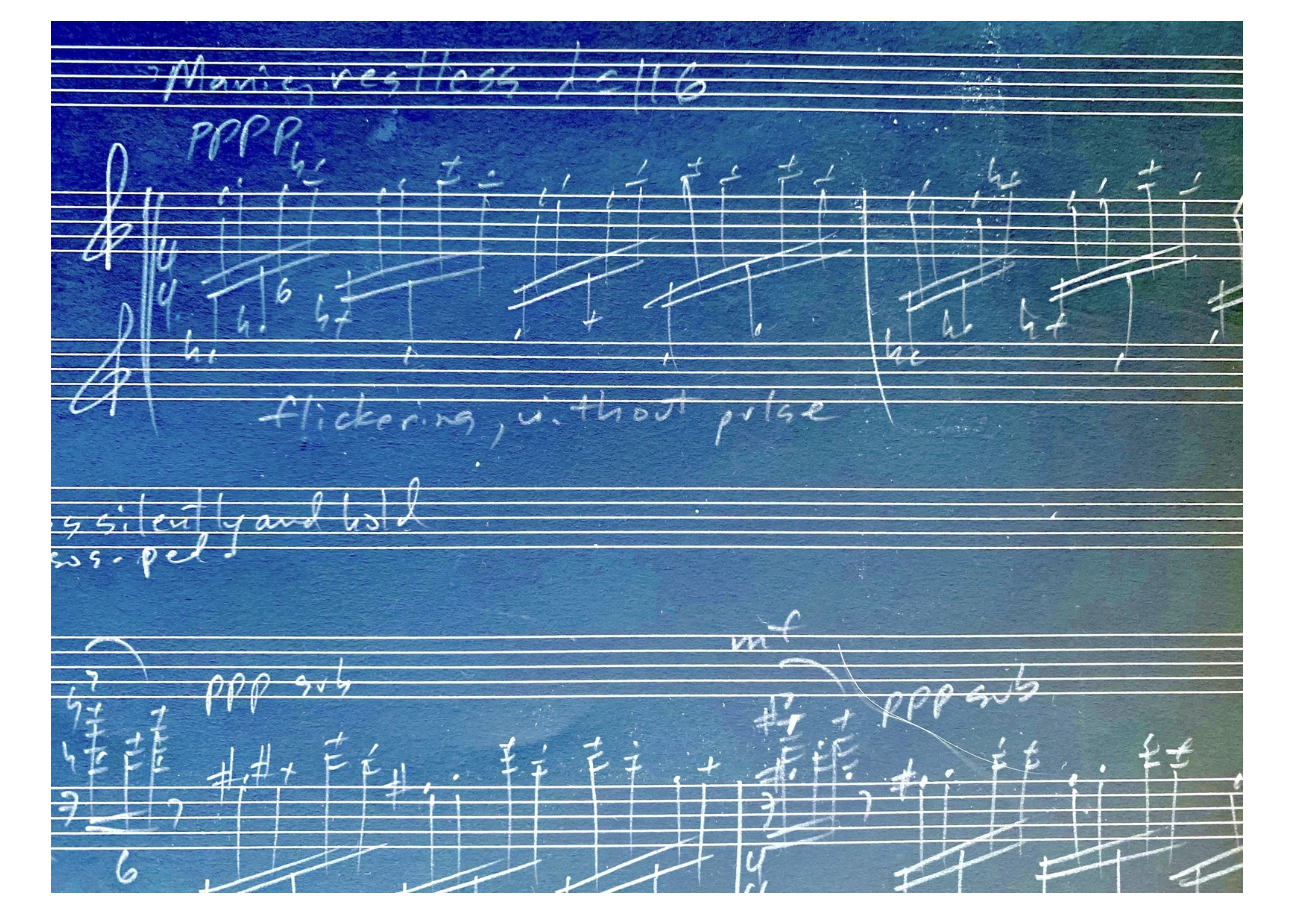 Manic, restless ♩=116
pppp
6
flickering, without pulse
s silently and hold
sos. ped.
mf
ppp sub
ppp sub
6